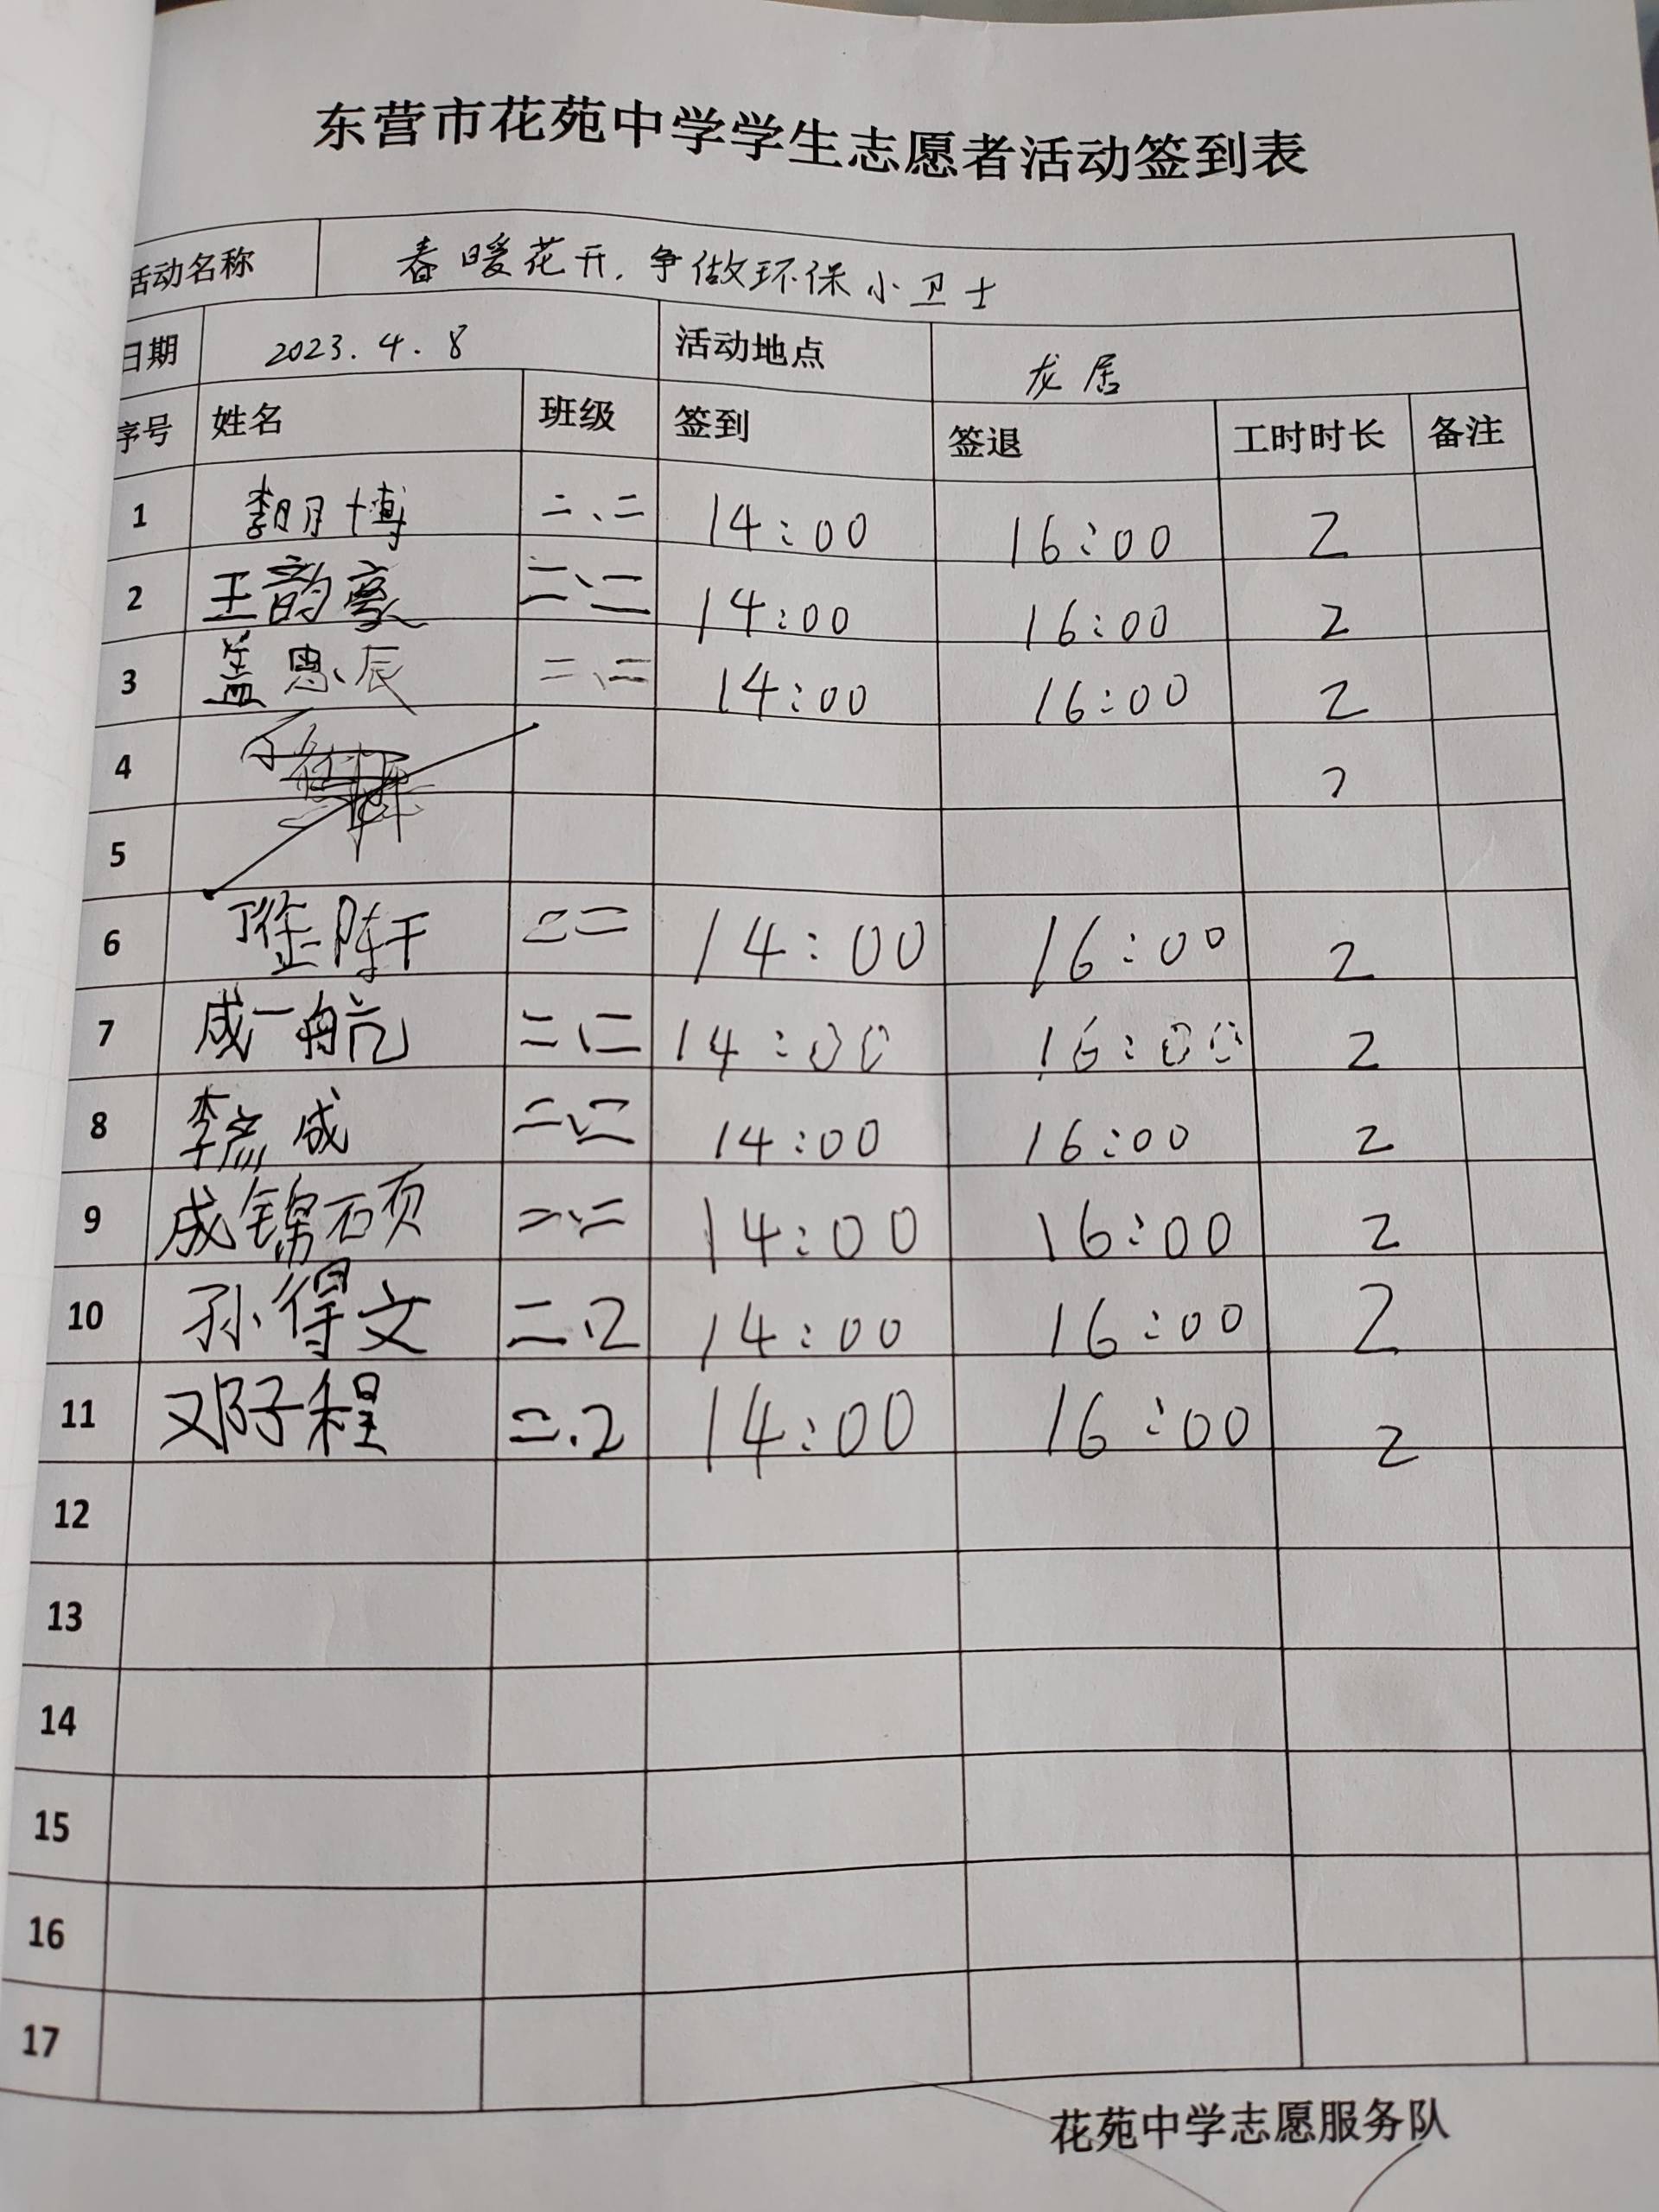 东营市花苑中学学生志愿者活动签到表
活动名称 春暖花开,争做环保小卫士
日期 2023.4.8 活动地点 龙居
序号 姓名 班级 签到 签退 工时时长 备注
1 李明博 二、二 14:00 16:00 2
2 王韵豪 二、二 14:00 16:00 2
3 盖思辰 二、二 14:00 16:00 2
4 2
5
6 二二 14:00 16:00 2
7 成一航 二、二 14:00 16:00 2
8 李 成 二、二 14:00 16:00 2
9 成锦硕 二、二 14:00 16:00 2
10 孙得文 二、2 14:00 16:00 2
11 邓子程 二.2 14:00 16:00 2
12
13
14
15
16
17
花苑中学志愿服务队